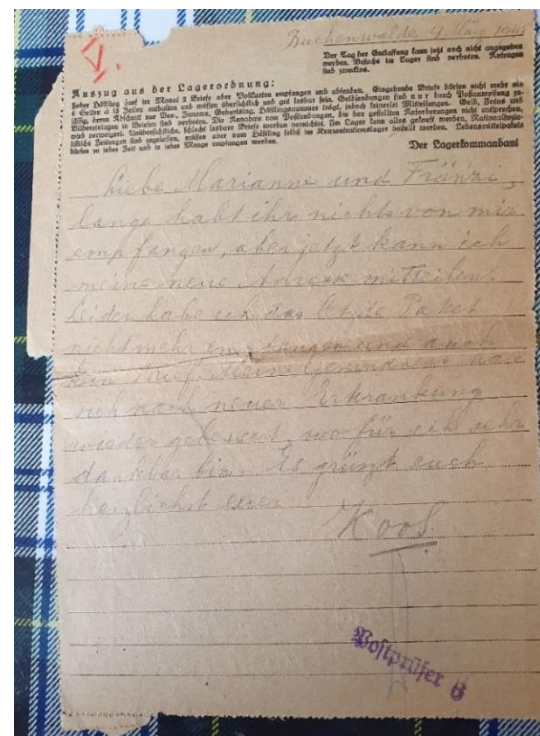 Buchenwalde 4 1945
V.
Der Tag der Entlassung kann jetzt noch nicht angegeben
werden. Besuche im Lager sind verboten. Anfragen
sind zwecklos.
Auszug aus der Lagerordnung:
Jeder Häftling darf im Monat 2 Briefe oder Postkarten empfangen und absenden. Eingehende Briefe dürfen nicht mehr als
4 Seiten à 15 Zeilen enthalten und müssen übersichtlich und gut lesbar sein. Geldsendungen sind nur durch Postanweisung zu-
lässig, deren Abschnitt nur Vor-, Zuname, Geburtstag, Häftlingsnummer trägt, jedoch keinerlei Mitteilungen. Geld, Fotos und
Bildereinlagen in Briefen sind verboten. Die Annahme von Postsendungen, die den gestellten Anforderungen nicht entsprechen,
wird verweigert. Unübersichtliche, schlecht lesbare Briefe werden vernichtet. Im Lager kann alles gekauft werden. Nationalsozia-
listische Zeitungen sind zugelassen, müssen aber vom Häftling selbst im Konzentrationslager bestellt werden. Lebensmittelpakete
dürfen zu jeder Zeit und in jeder Menge empfangen werden.
Der Lagerkommandant
Liebe Marianne und Fränzi,
lange habt ihr nichts von mir
empfangen, aber jetzt kann ich
meine neue Adresse mitteilen.
Leider habe ich das letzte Paket
nicht mehr empfangen und auch
kein Brief. Meine Gesundheit hat
sich nach neuer Erkrankung
wieder gebessert, wo für ich sehr
dankbar bin. Es grüszt euch
herzlichst euer
Koos.
Postprüfer 6